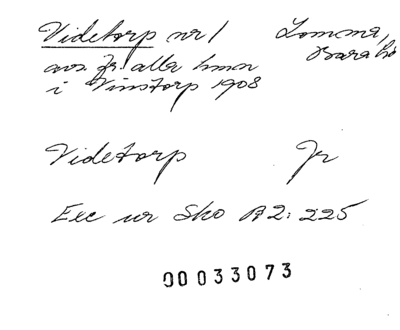 Videtorp nr 1 Lomma,
Bara hd
avs. fr. alla hmn
i Vinstorp 1908
Videtorp Jr
Exc ur Sko A2: 225
00033073